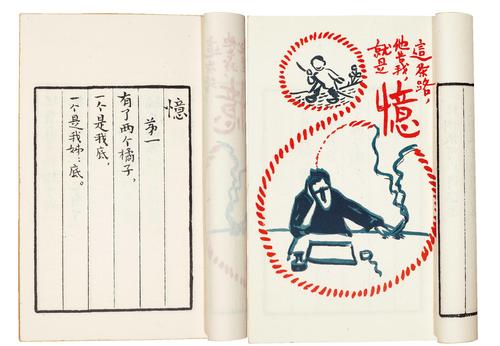 這条路，
他告我，
就是
憶
憶
苐一
有了两个橘子，
一个是我底，
一个是我姊〻底。